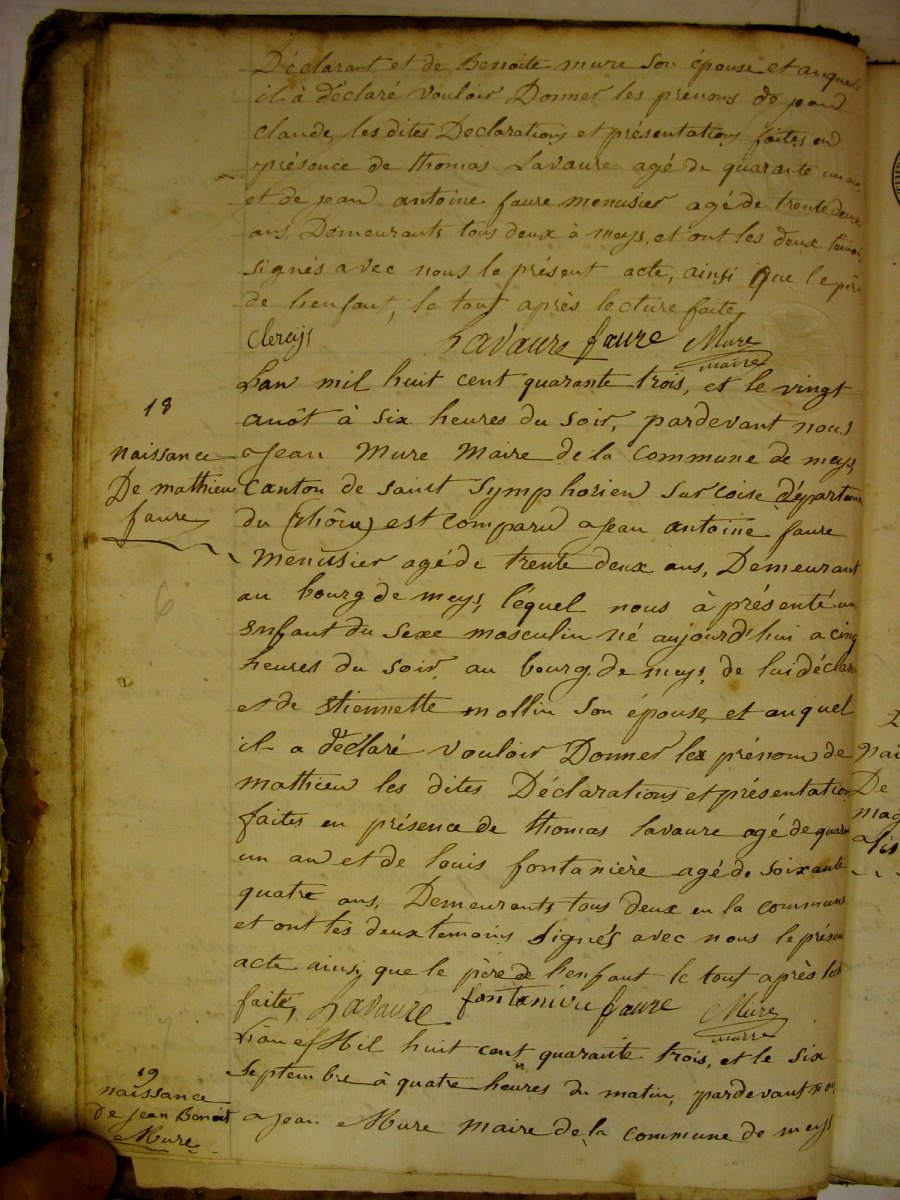 Déclarant et de Benoite mure son épouse et auquel
il à déclaré vouloir Donner les prenoms de jean
claude, les dites Declarations et présentations faites en
présence de thomas Lavaure agé de quarante un an
et de jean antoine faure menusier agé de trente deux
ans, Demeurants tous deux à meys, et ont les deux temoins
signés avec nous le présent acte, ainsi que le père
de lienfant, le tout après lecture faite,
Lavaure faure Mure
maire
L'an mil huit cent quarante trois, et le vingt
18
auôt à six heures du soir, pardevant nous
naissance
De mathieu
faure
Jean Mure Maire de la commune de meys
Canton de saint Symphorien sur coise départeme
du (rhône) est comparu Jean antoine faure
Menusier agé de trente deux ans, Demeurant
au bourg de meys, léquel nous à présenté un
Enfant du sexe masculin né aujourd'hui a cinq
heures du soir, au bourg de meys, de lui déclara
et de Etiennette mollin son épouse, et auquel
il a déclaré vouloir Donner le prénom de
mathieu les dites Déclarations et présentation
faites en présence de thomas lavaure agé de quara
un an et de louis fontanière agé de soixante
quatre ans, Demeurants tous deux en la commune
et ont les deux temoins signés avec nous le présen
acte ainsi, que le père de l'enfant le tout après lect
faite, Lavaure fontaniere faure Mure
maire
L'an Mil huit cent quarante trois, et le six
19
naissance
de Jean Benoit
Mure
Septembre à quatre heures du matin, pardevant nou
Jean Mure maire de la commune de meys
2
nai
De
mag